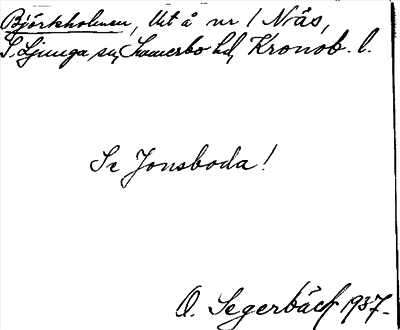 Björkholmen, Ut å nr 1 Näs,
S. Ljunga sn, Sunnerbo hd, Kronob. l.
Se Jonsboda!
O. Segerbäck 1937.